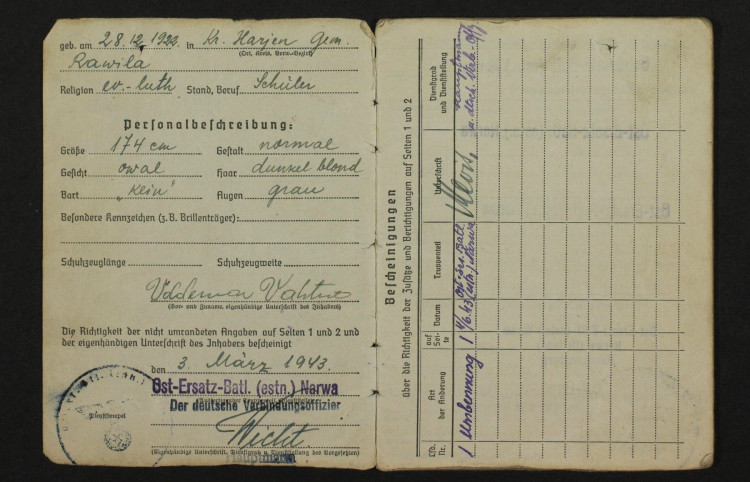 geb. am 28.12.1922 in Kr. Harjen Gem.
(Ort, Kreis, Verw.-Bezirk)
Rawila
Religion ev.-luth Stand, Beruf Schüler
Personalbeschreibung:
Größe 174 cm Gestalt normal
Gesicht owal Haar dunkel blond
Bart „Kein" Augen grau
Besondere Kennzeichen (z.B. Brillenträger):
Schuhzeuglänge Schuhzeugweite
(Vor- und Zuname, eigenhändige Unterschrift des Inhabers)
Die Richtigkeit der nicht umrandeten Angaben auf Seiten 1 und 2 und
der eigenhändigen Unterschrift des Inhabers bescheinigt
den 3. März 1943.
Ost-Ersatz-Batl. (estn.) Narwa
Der deutsche Verbindungsoffizier
Dienststempel
(Eigenhändige Unterschrift, Dienstgrad u. Dienststellung des Vorgesetzten)
Hauptmann
Bescheinigungen
über die Richtigkeit der Zusätze und Berichtigungen auf Seiten 1 und 2
Lfd. Nr.
Art der Änderung
auf Seite
Datum
Truppenteil
Unterschrift
Dienstgrad und Dienststellung
1 Umbenennung 1 Ost-Ers. Batl. (estn.) Narwa Hauptmann